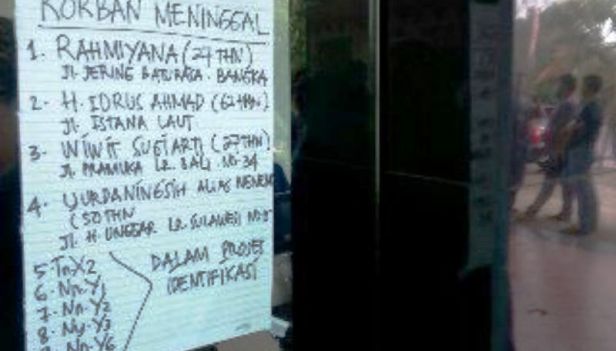 KORBAN MENINGGAL
1. RAHMIYANA (27 THN)
JL. JERING BATURAJA. BANGKA
2. H. IDRUS AHMAD (62 THN)
JL. ISTANA LAUT
3. WIWIT SUGIARTI (27 THN)
JL. PRAMUKA LR. BALI NO. 34
4. YURDANINGSIH ALIAS
(50 THN
JL. H. UNGGAR LR. SULAWESI NO.
5. Tn. X2
6. Nn. Y1
7. Nn. Y2
8. Ny. Y3
Nn. Y6
DALAM PROSES
IDENTIFIKASI